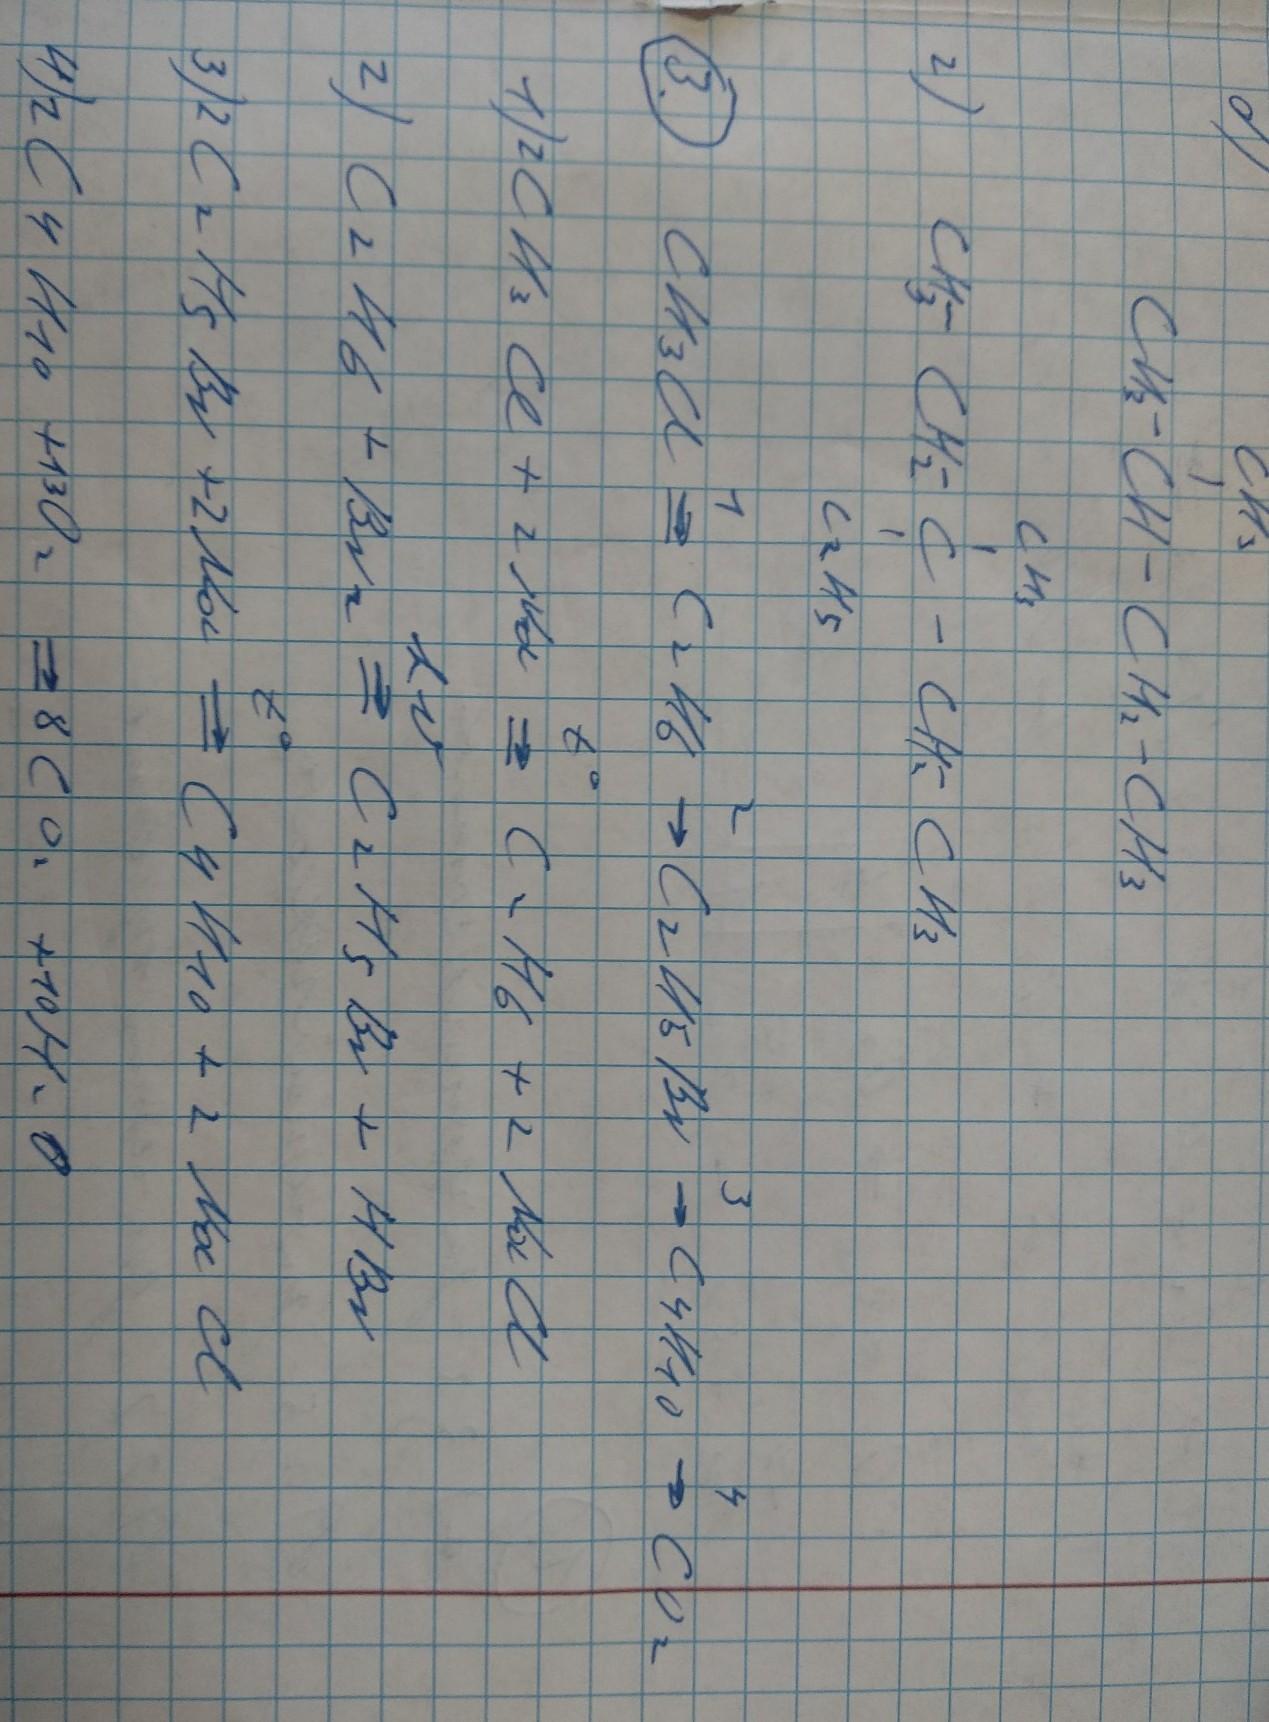 д)
CH₃
|
CH₃-CH-CH₂-CH₃
2)
CH₃
|
CH₃-CH₂-C-CH₂-CH₃
|
C₂H₅
3. CH₃Cl ⇒¹ C₂H₆ →² C₂H₅Br →³ C₄H₁₀ →⁴ CO₂
t°
1) 2CH₃Cl + 2Na ⇒ C₂H₆ + 2NaCl
hν
2) C₂H₆ + Br₂ ⇒ C₂H₅Br + HBr
t°
3) 2C₂H₅Br + 2Na ⇒ C₄H₁₀ + 2NaCl
4) 2C₄H₁₀ + 13O₂ ⇒ 8CO₂ + 10H₂O